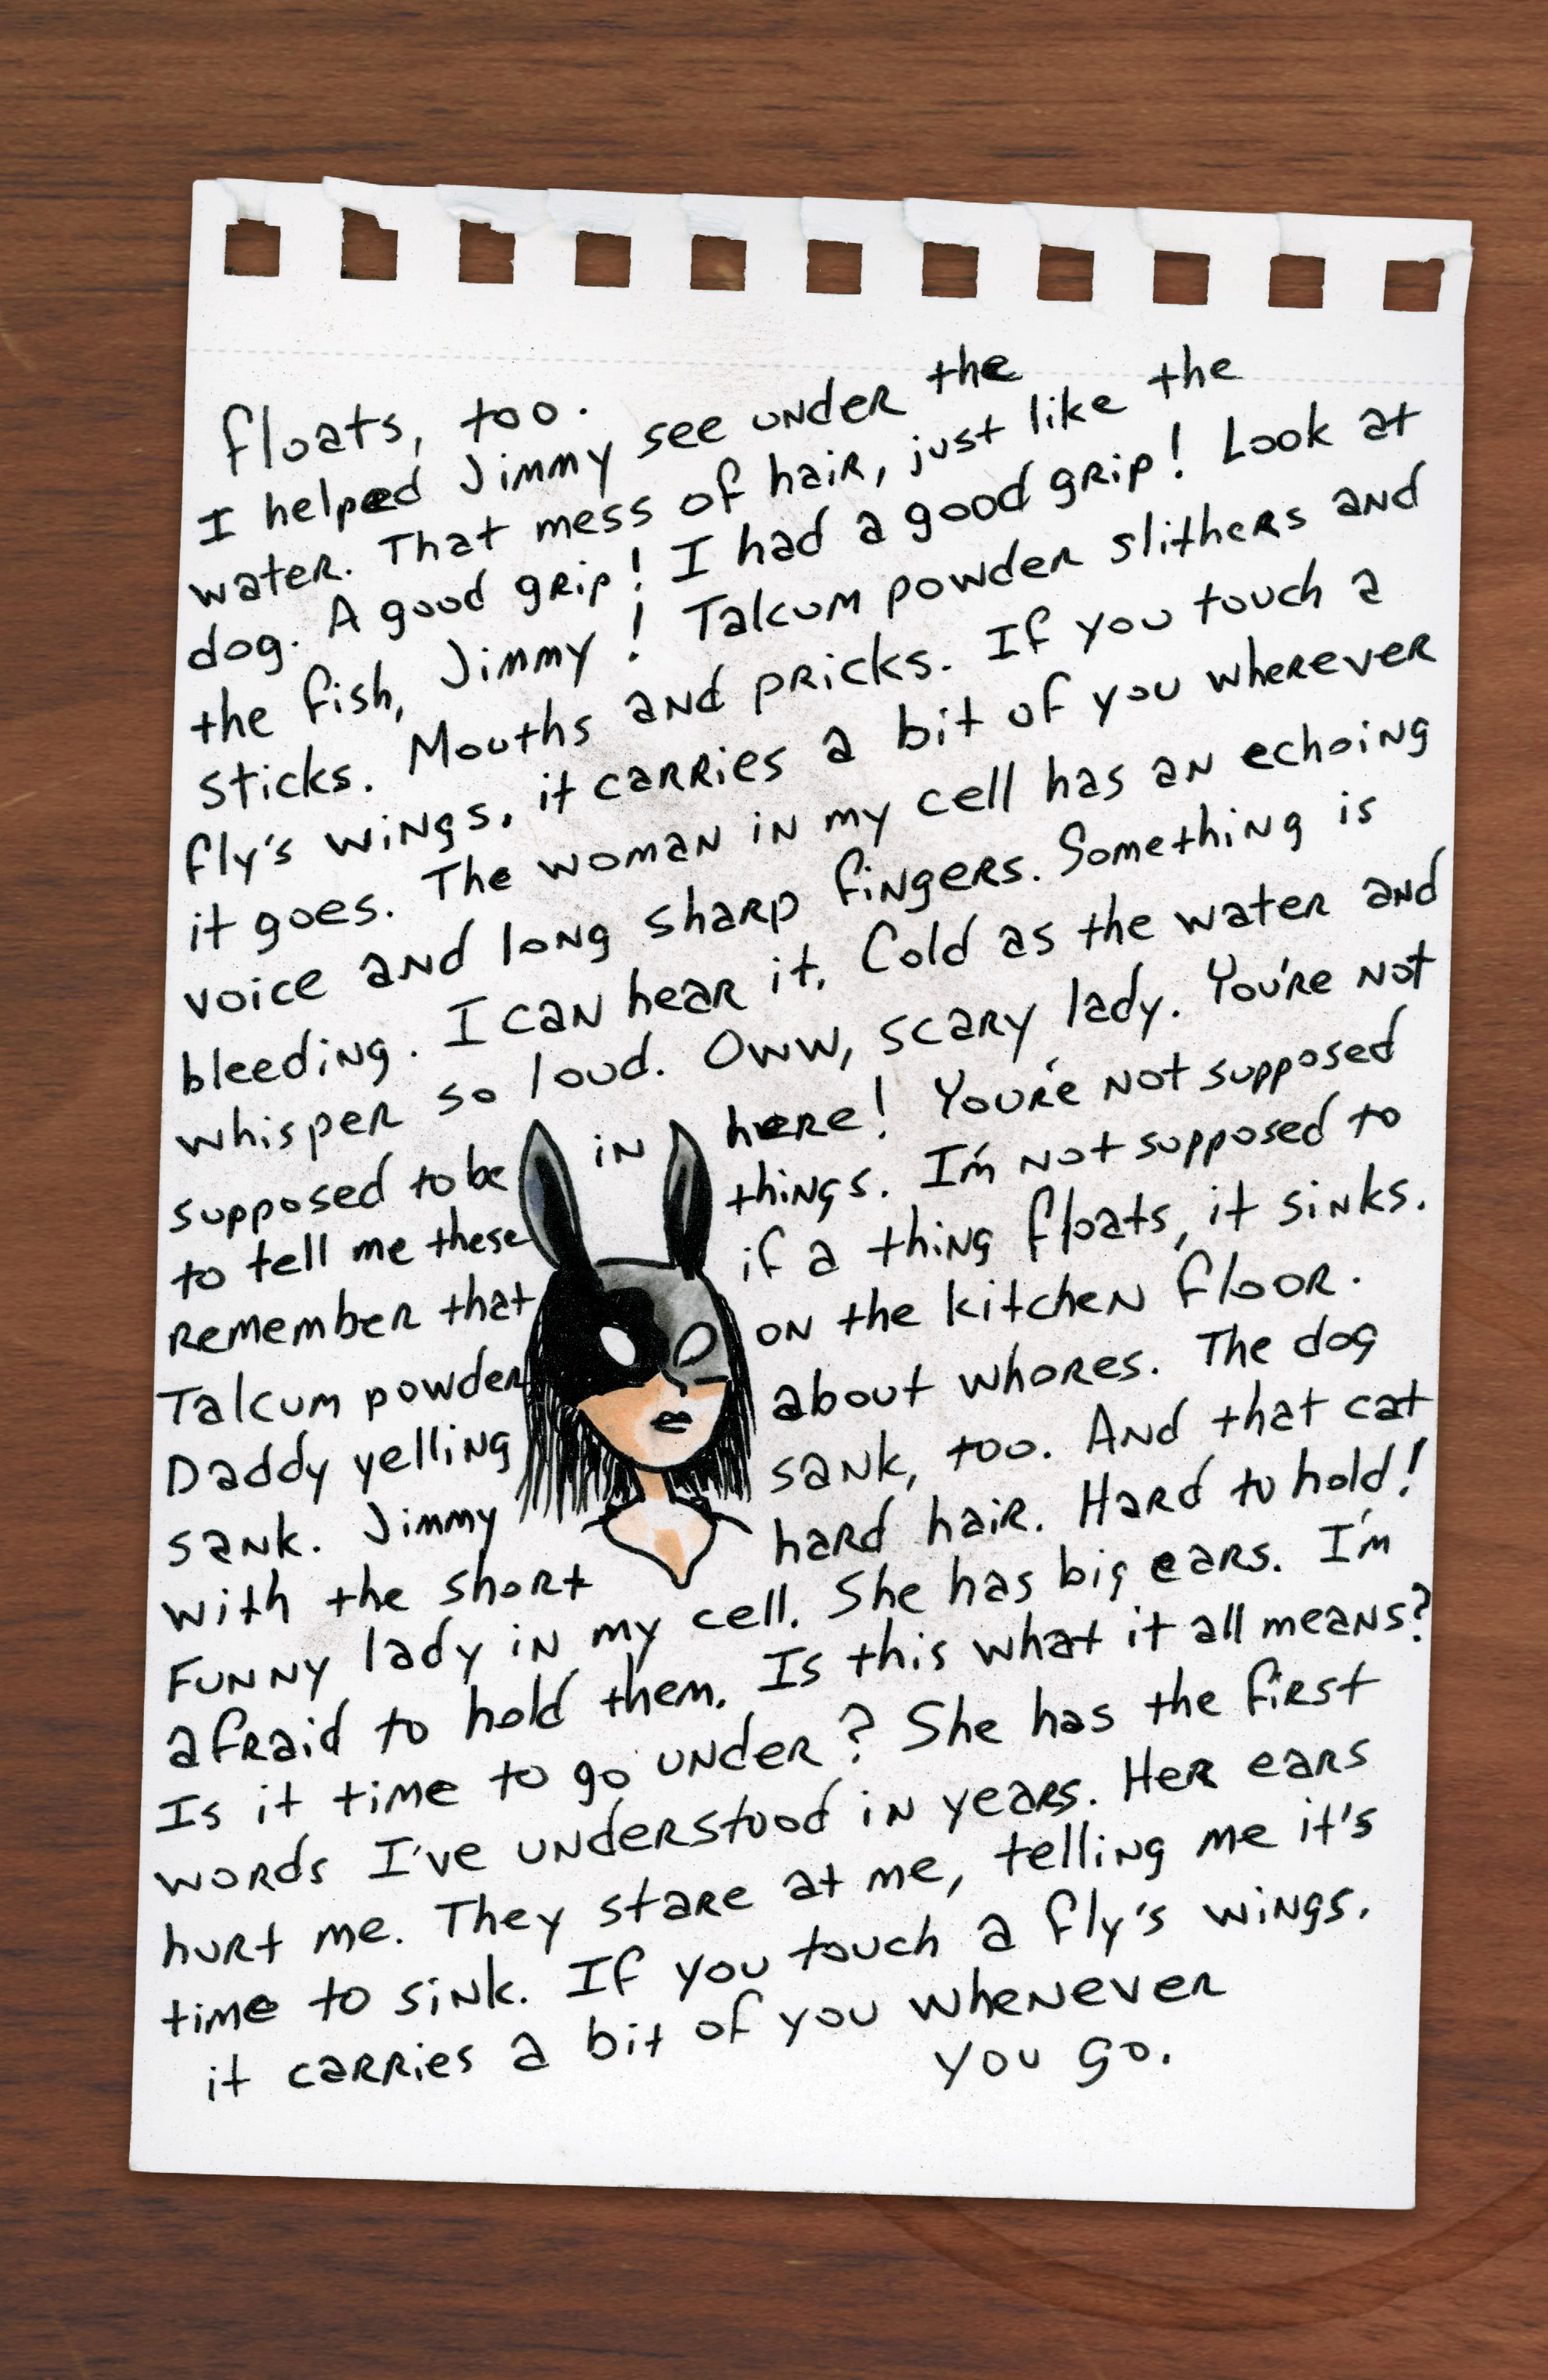 floats, too.
I helped Jimmy see under the
water. That mess of hair, just like the
dog. A good grip! I had a good grip! Look at
the fish, Jimmy! Talcum powder slithers and
sticks. Mouths and pricks. If you touch a
fly's wings, it carries a bit of you wherever
it goes. The woman in my cell has an echoing
voice and long sharp fingers. Something is
bleeding. I can hear it. Cold as the water and
whisper so loud. Oww, scary lady. You're not
supposed to be in here! You're not supposed
to tell me these things. I'm not supposed to
remember that if a thing floats, it sinks.
Talcum powder on the kitchen floor.
Daddy yelling about whores. The dog
sank. Jimmy sank, too. And that cat
with the short hard hair. Hard to hold!
Funny lady in my cell. She has big ears. I'm
afraid to hold them. Is this what it all means?
Is it time to go under? She has the first
words I've understood in years. Her ears
hurt me. They stare at me, telling me it's
time to sink. If you touch a fly's wings,
it carries a bit of you whenever
you go.